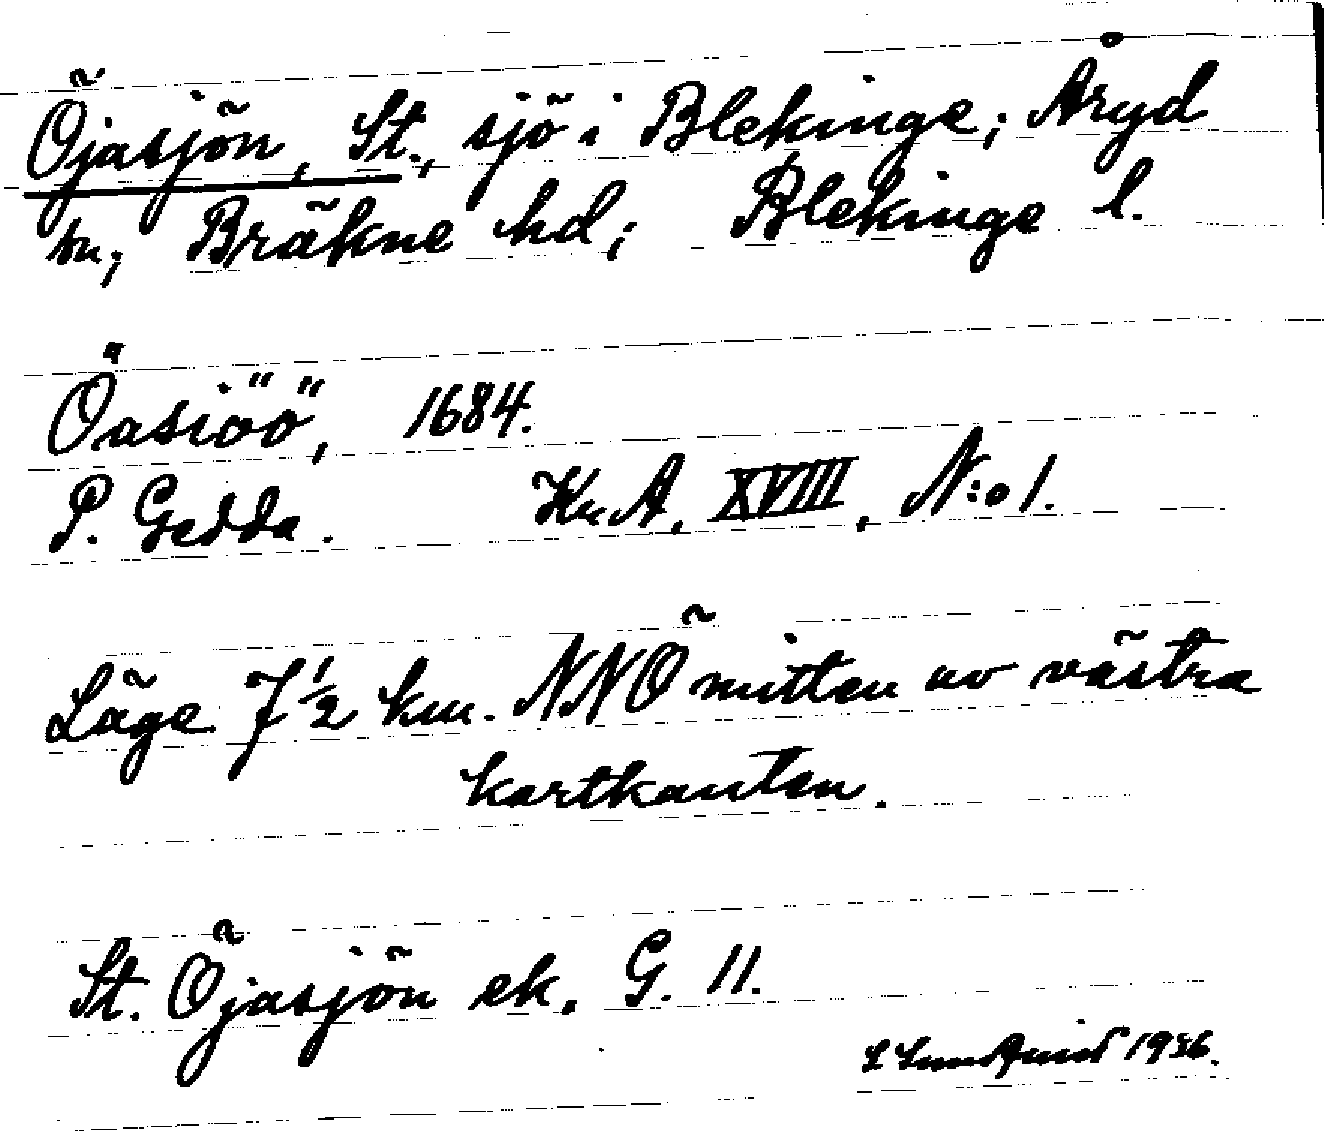 Öjasjön, St., sjö i Blekinge; Åryd
sn; Bräkne hd; Blekinge l.
Öasiöö, 1684.
P. Gedda. Kr.A, XVIII, N:o 1.
Läge 7 1/2 km. NNÖ mitten av västra
kartkanten.
St. Öjasjön ek. G. 11.
1936.